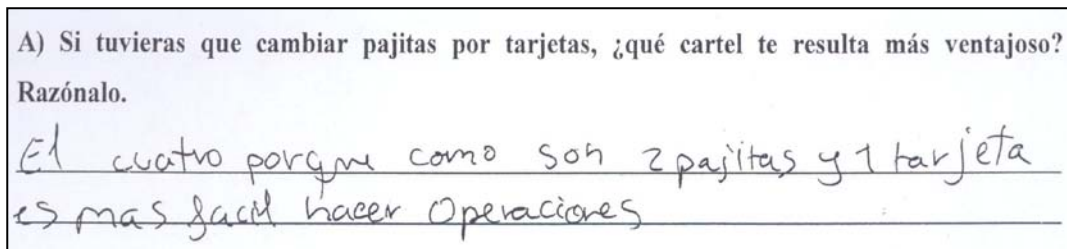 A) Si tuvieras que cambiar pajitas por tarjetas, ¿qué cartel te resulta más ventajoso?
Razónalo.
El cuatro porque como son 2 pajitas y 1 tarjeta
es mas facil hacer Operaciones